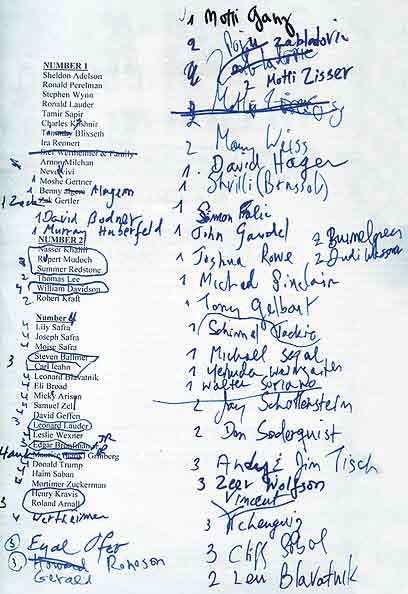 NUMBER 1
Sheldon Adelson
Ronald Perelman
Stephen Wynn
Ronald Lauder
Tamir Sapir
Charles Kushnir
Blixseth
Ira Rennert
Wertheimer & Family
Arnon Milchan
1 Moshe Gertner
1 Benny Alagem
Gertler
1 David Bodner
1 Murray Huberfeld
NUMBER 2
Nasser Khalili
Rupert Mudoch
Summer Redstone
2 Thomas Lee
4 William Davidson
2 Robert Kraft
Number 4
Lily Safra
Joseph Safra
Moise Safra
3 Steven Ballmer
Carl Icahn
Leonard Blavatnik
Eli Broad
Micky Arison
Samuel Zell
David Geffen
Leonard Lauder
Leslie Wexner
Edgar Bronfman JR
Hank Maurice Grinberg
Donald Trump
Haim Saban
Mortimer Zuckerman
Henry Kravis
3 Roland Arnall
4 Wertheimer
Eyal Ofer
3 Howard Ronson
Gerald
1 Motti
2 Zabladovic
2 Motti Zisser
2 Weiss
1 David Hager
1 Shvilli (Brussol)
1 Simon Falic
1 John Gandel
1 Joshua Rowe
2
2
1 Michael Sinclair
1 Tony Gelbart
1 Schimmel
1 Michael Segal
1 Yehuda
1 Walter Soriano
2 Jay Schottenstein
2 Don Soderquist
3 Andy & Jim Tisch
3 Zeev Wolfson
Vincent
3 Tchenguiz
3 Cliff Sobol
2 Len Blavatnik